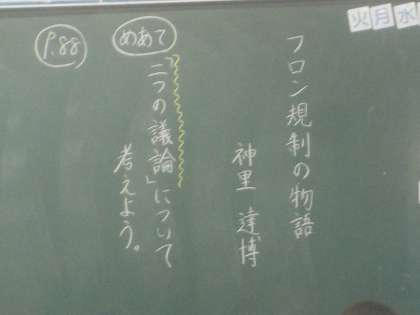 火月水
フロン規制の物語
神里 達博
めあて
「二つの議論」について
考えよう。
P.88